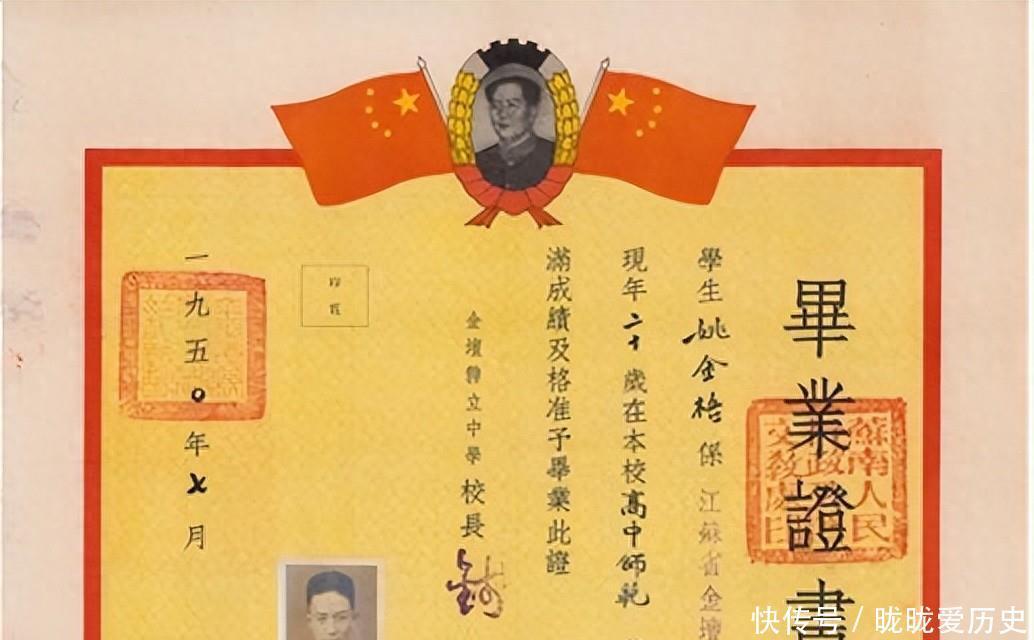 畢業證書
學生姚金梧係江蘇省金壇
現年二十歲在本校高中師範
滿成績及格准予畢業此證
金壇縣立中學校長
一九五〇年七月
蘇南人民
文教處印
快传号 / 昽昽爱历史